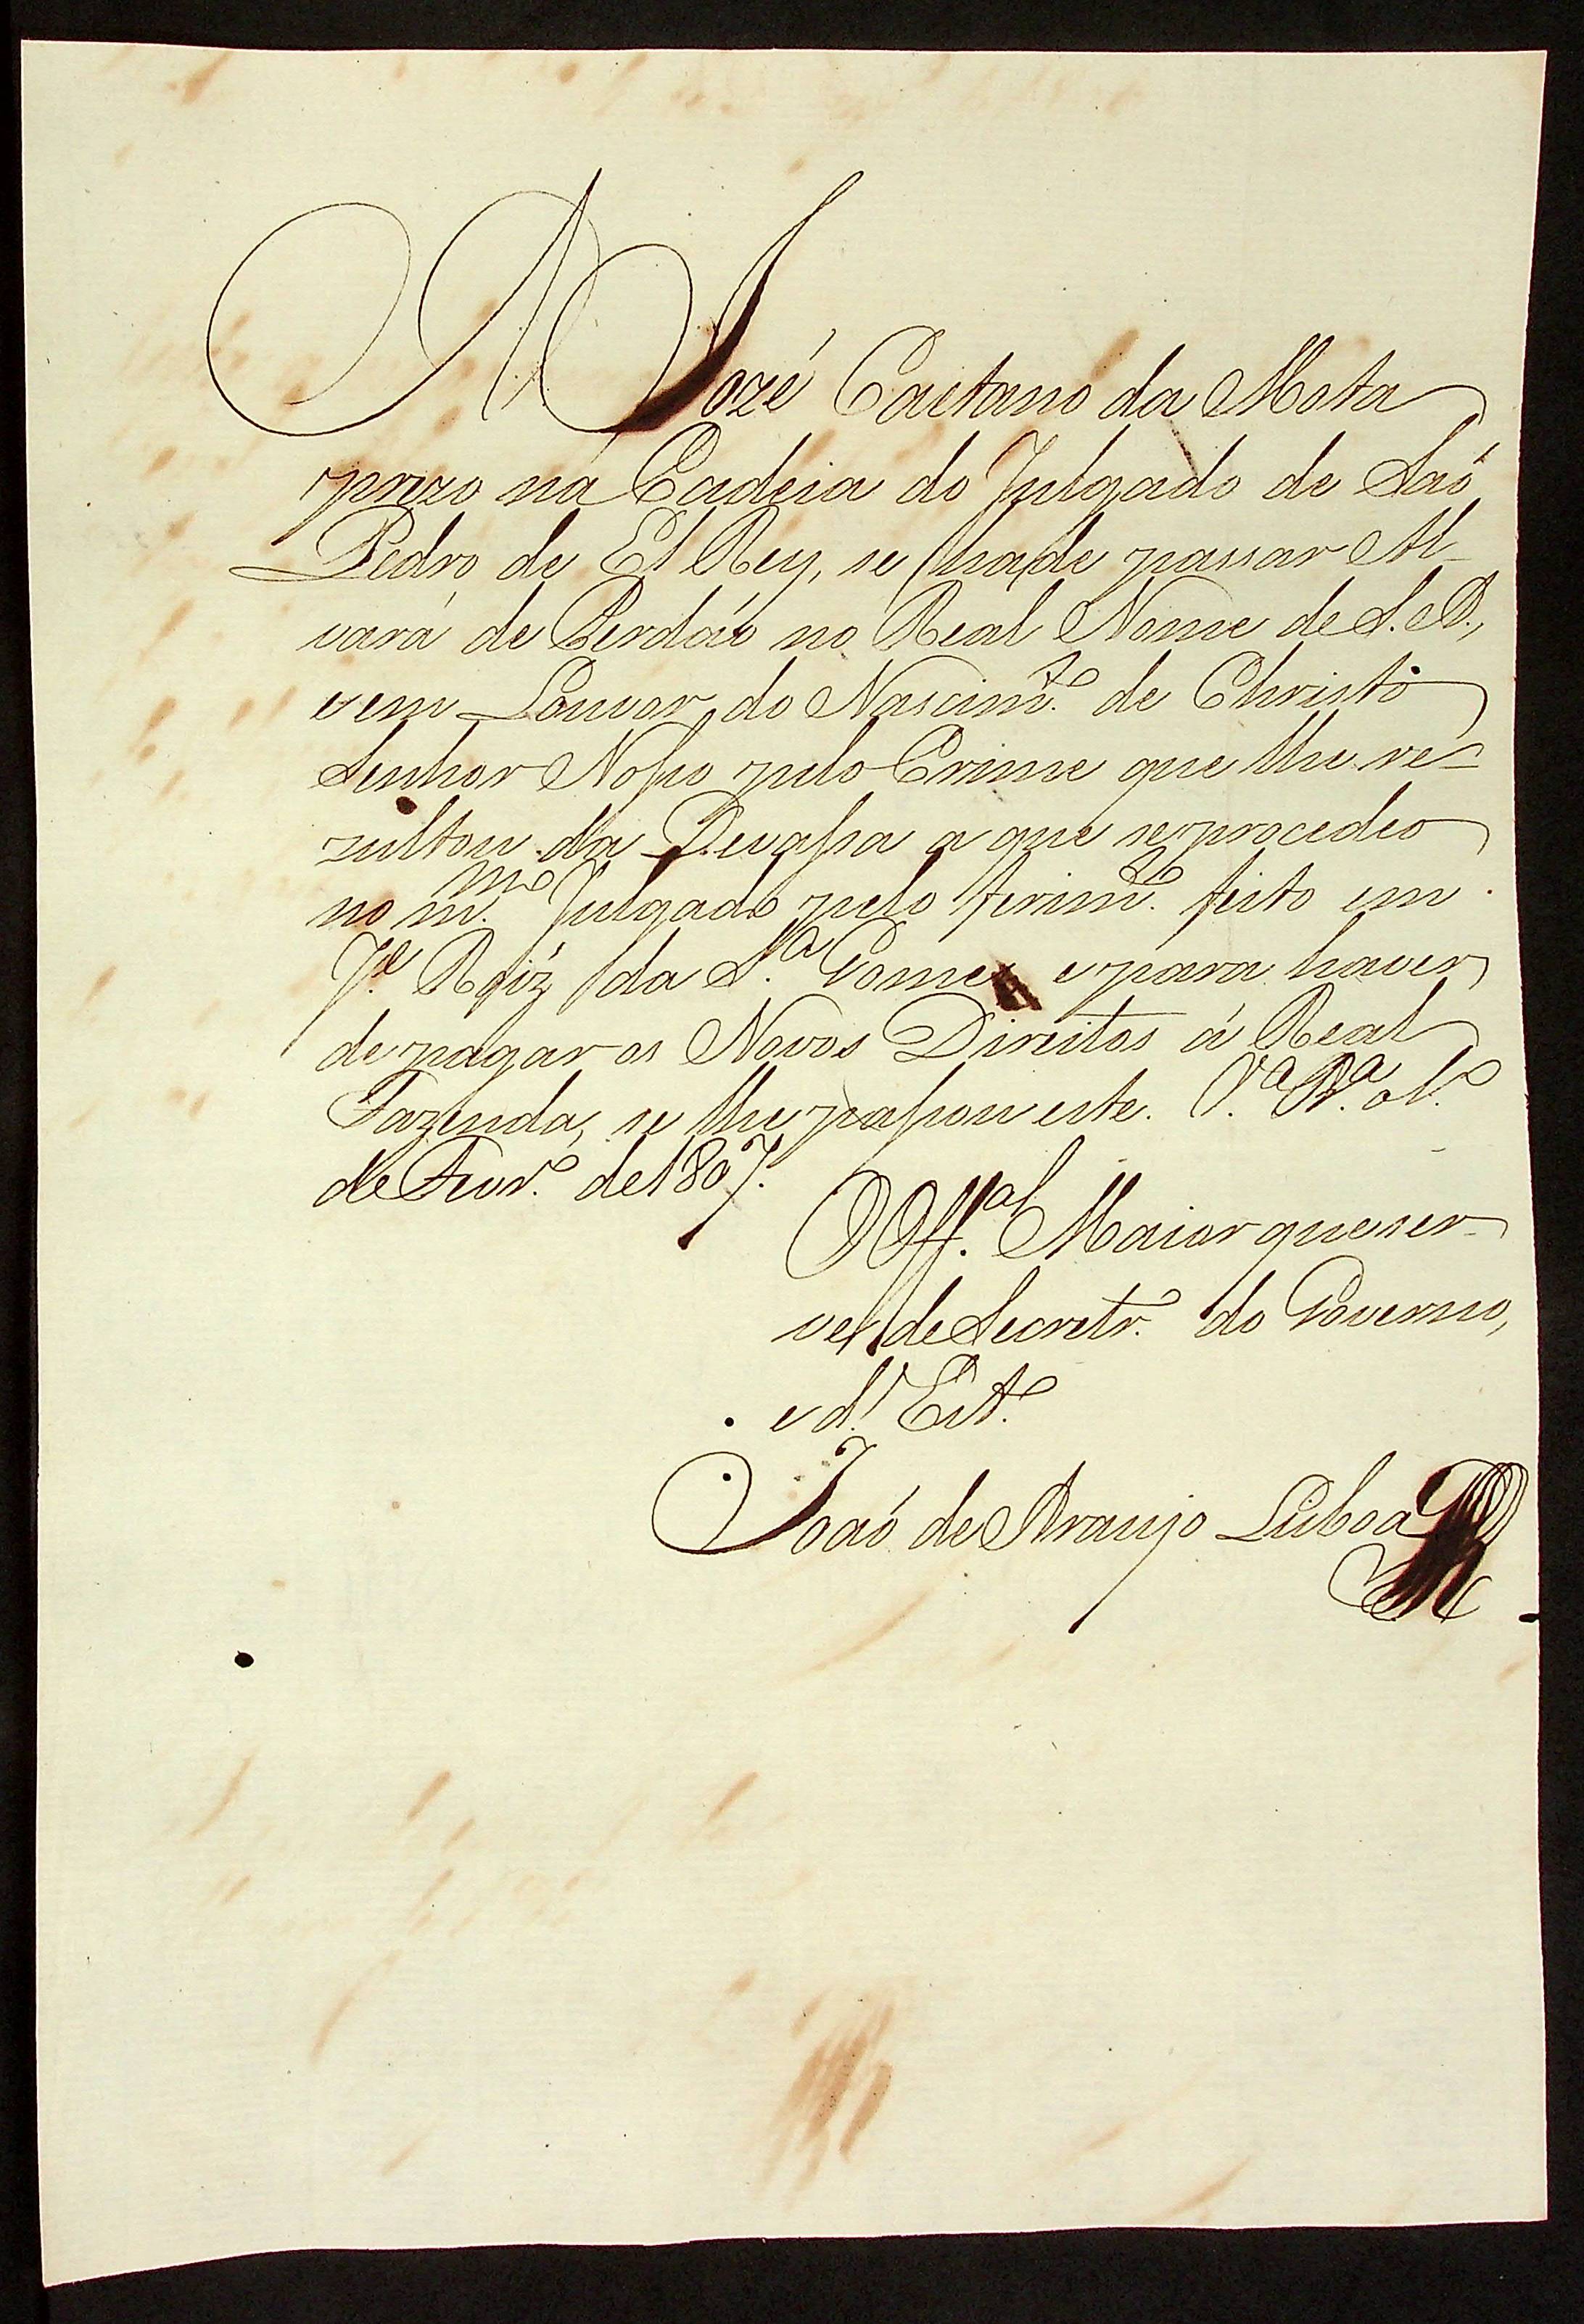 A Jozé Caetano da Mota
prezo na Cadeia do Julgado de Saõ
Pedro de El Rey, se hade passar Al-
vará de Perdaõ no Real Nome de S. A.,
e em Louvor do Nascim.to de Christo
Senhor Nosso pelo Crime que lhe re-
zultou da Devassa a que se procedeo
no m.mo Julgado pelo ferim.to feito em
J.e Roiz da S.a Gomes e para haver
de pagar os Novos Direitos á Real
Fazenda, se lhe passou este. V.a B.a
de Fevr.o de 1807.
O Off.al Maior que ser-
ve de Secretr.o do Governo,
Joaõ de Araujo Lisboa